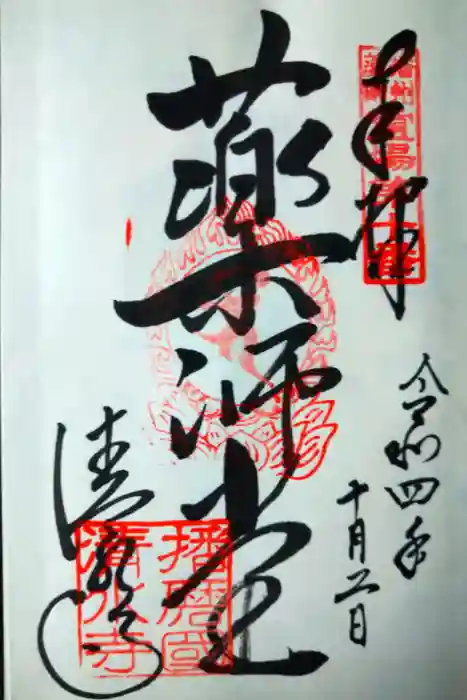 奉拝
令和四年
十月二日
薬師堂
清水寺
播磨國
清水寺